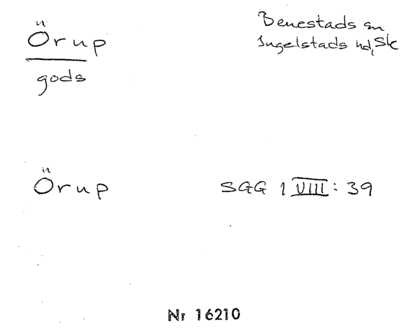 Örup
gods
Benestads sn
Ingelstads hd, Sk
Örup
SGG 1 VIII: 39
Nr 16210